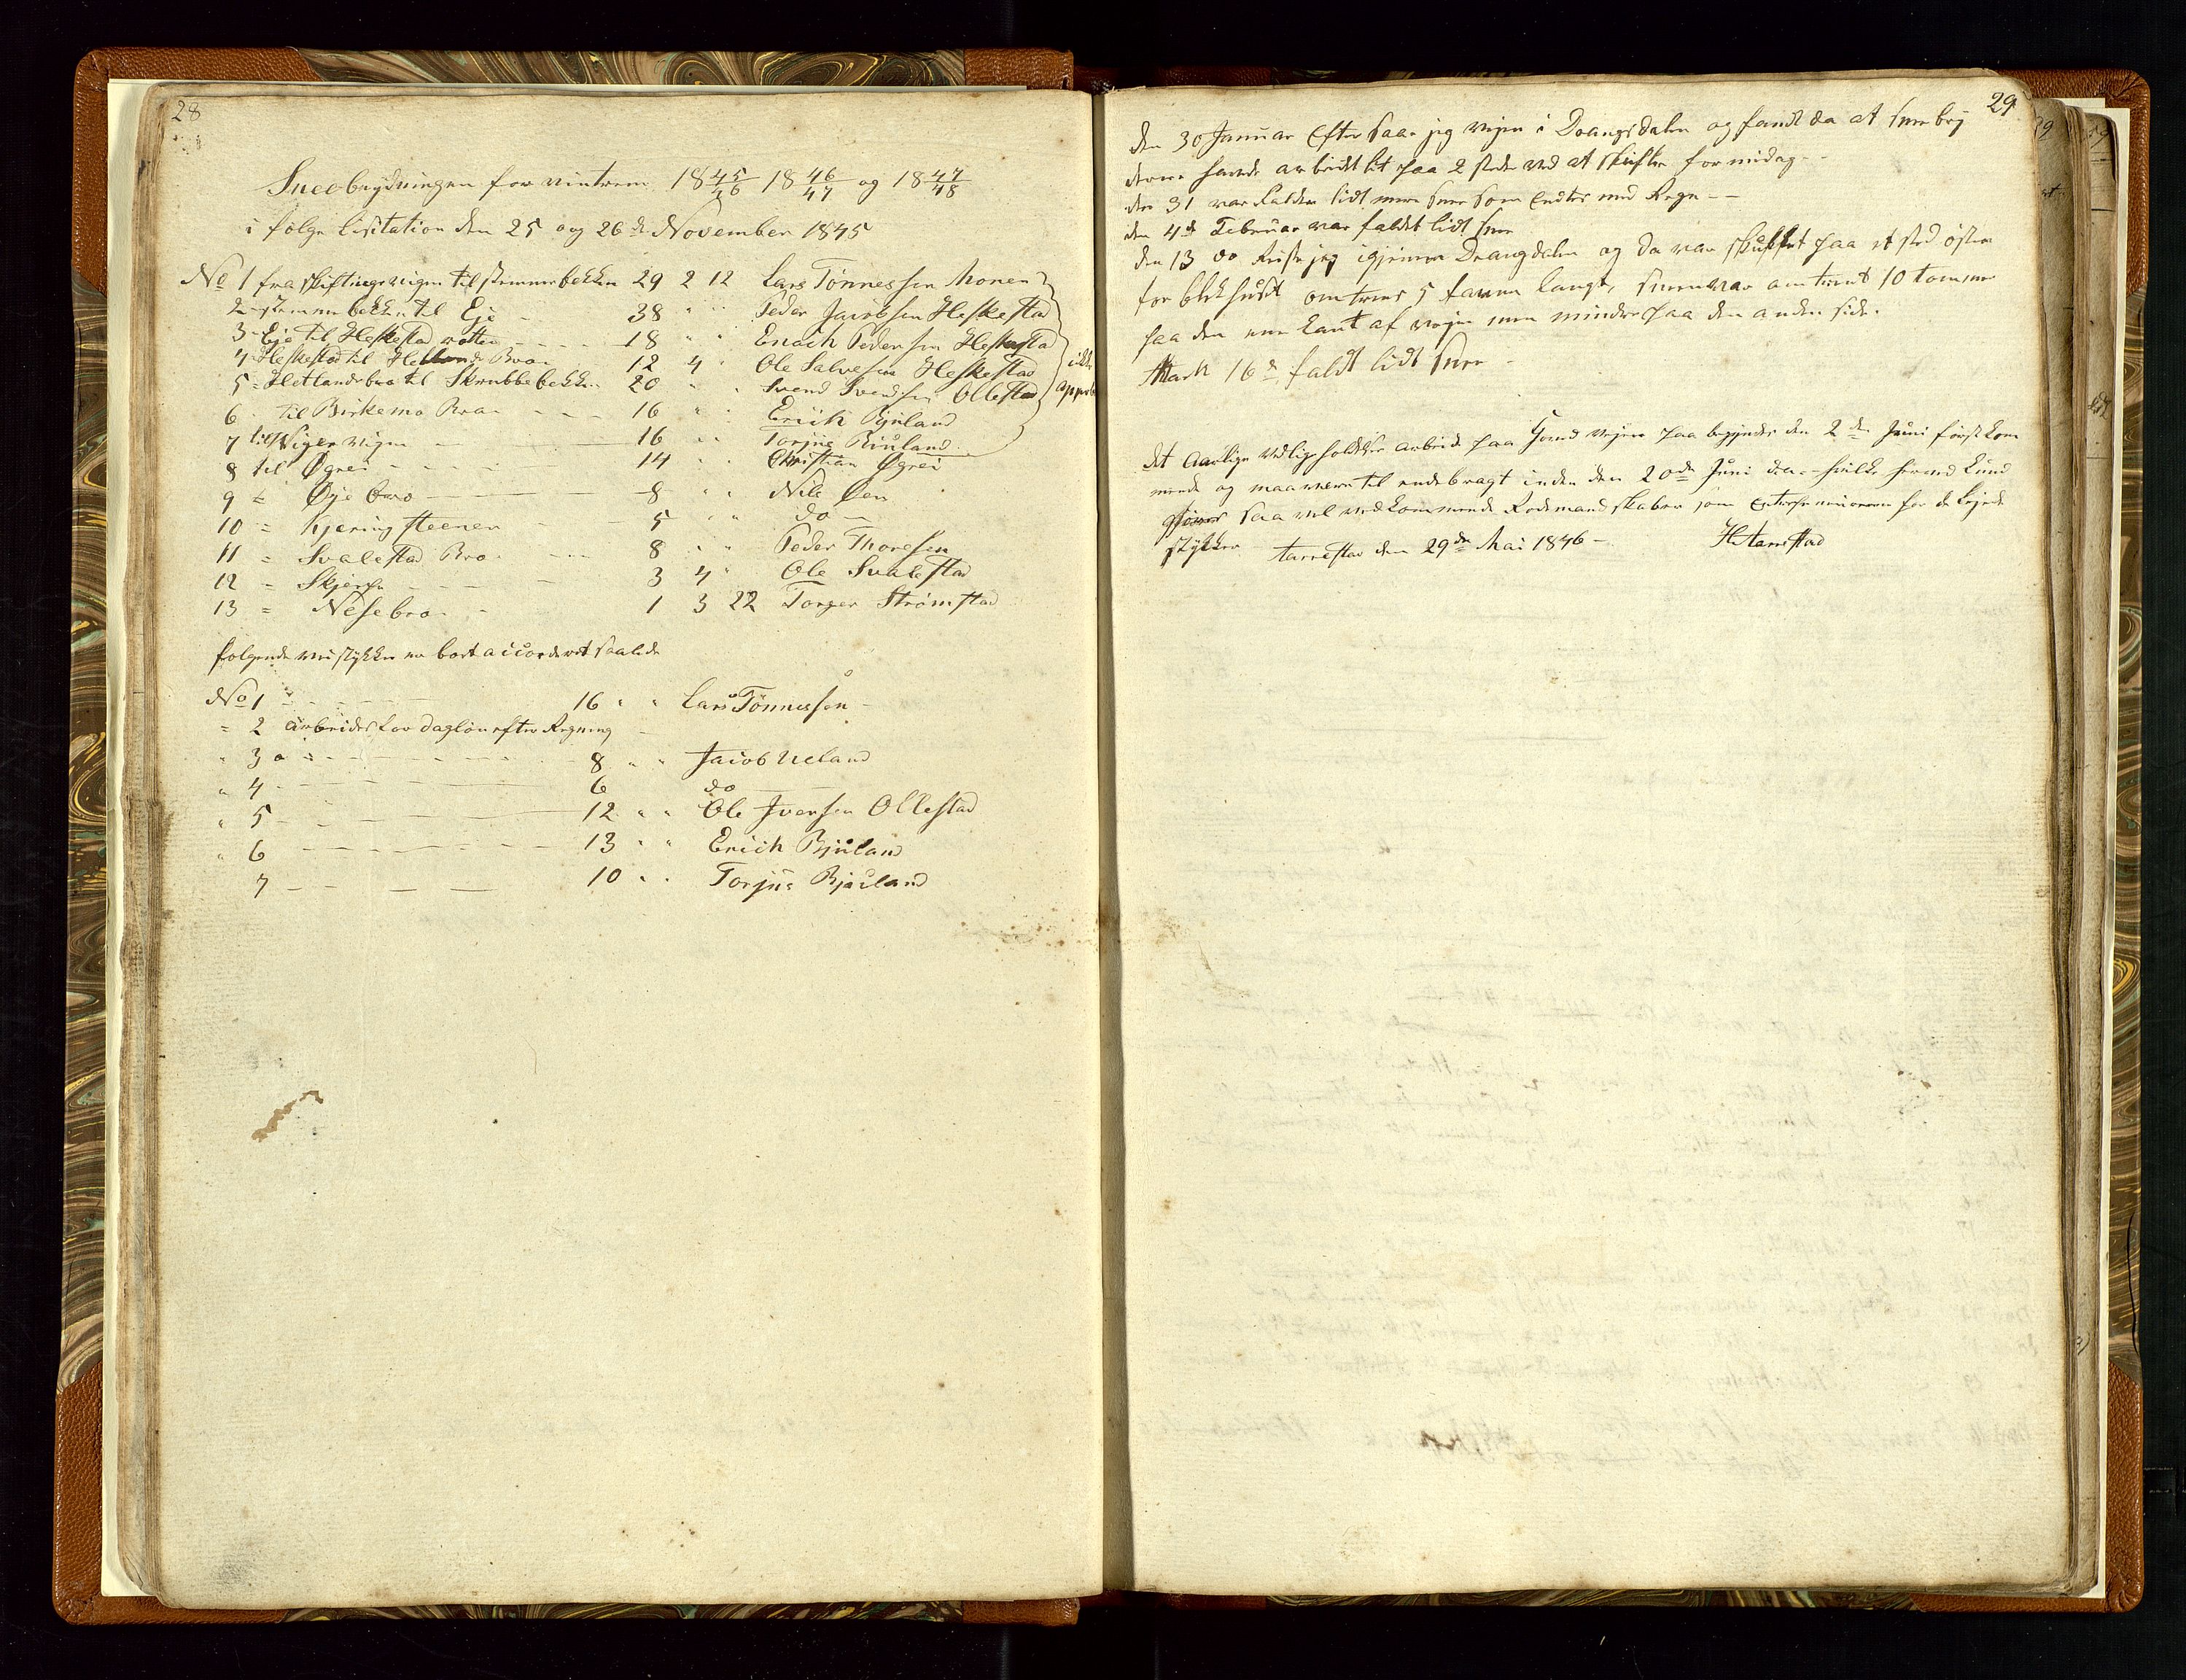 28
Sneebrydningen for vintrem 18 45/46 18 46/47 og 18 47/48
i følge lisitation den 25 og 26de November 1845
No 1 fra skiftings vigen til stemmebekken 29 2 12 Lars Tønnessen Monen
2 - stemmebekken til Eje - 38 " " Peder Jacobsen Heskestad
3 - Eje til Heskestad - - 18 " " Enoch Pedersen Heskestad
4 - Heskestad til Hetlands Broe 12 4 " Ole Salvesen Heskestad
5 - Hetlandsbro til Skrubbebekken 20 " " Svend Svendsen Ollestad
ikke
6 - til Birkemo Broe - - - 16 " " Erich Bjuland
7 til vigen - 16 " " Torjus Biuland
8 til Øgrei - - - 14 " " Christian Øgrei
9 = Øje bro - - - 8 " " Nils Øen
10 = Kjering steenen - - 5 " " do -
11 = Svalestad Bro - - - 8 " " Peder Thoresen
12 = - - - 3 4 " Ole Svalestad
13 = Nesebro - - 1 3 22 Torger Strømstad
følgende veistykker er bort accorderet saalede
No 1 - - - - 16 " " Lars Tønnessen -
= 2 arbeides for Dagløn efter Regning -
" 3 - - - - 8 " " Jacob Ueland
" 4 - - - - 6 do
" 5 - - - - 12 " " Ole Iversen Ollestad
" 6 - - - - 13 " " Erich Bjuland
7 - - - - 10 " " Torjus Bjuland
29
den 30 Januar Efter saae jeg vejen i Drangsdalen og fandt da at snee bry
derne havde arbeidet lit paa 2 steder ved at skufle formidag - -
den 31 var falden lidt mere snee som endtes med Regn - -
den 4de Februar var faldet lidt snee
den 13 do Reiste jeg igjennem Drangdalen og da var skuflet paa et sted østen
for blokhuset omtrent 5 favne langt, sneen var omtrent 10 tommer
paa den ene kant af vejen men mindre paa den anden side.
Mark 16de faldt lidt snee -
det aarlige vedligeholdelses arbeid paa veiene paa begyndes den 2den Juni førstkom
mende og maa være til endebragt inden den 20de Juni d.a. - hvilke herved kund
gjøres saa vel vedkommende Rodemandskaber som entreprenørerne for de lejede
stykker Tarrestad den 29de Mai 1846 - H Tarrestad